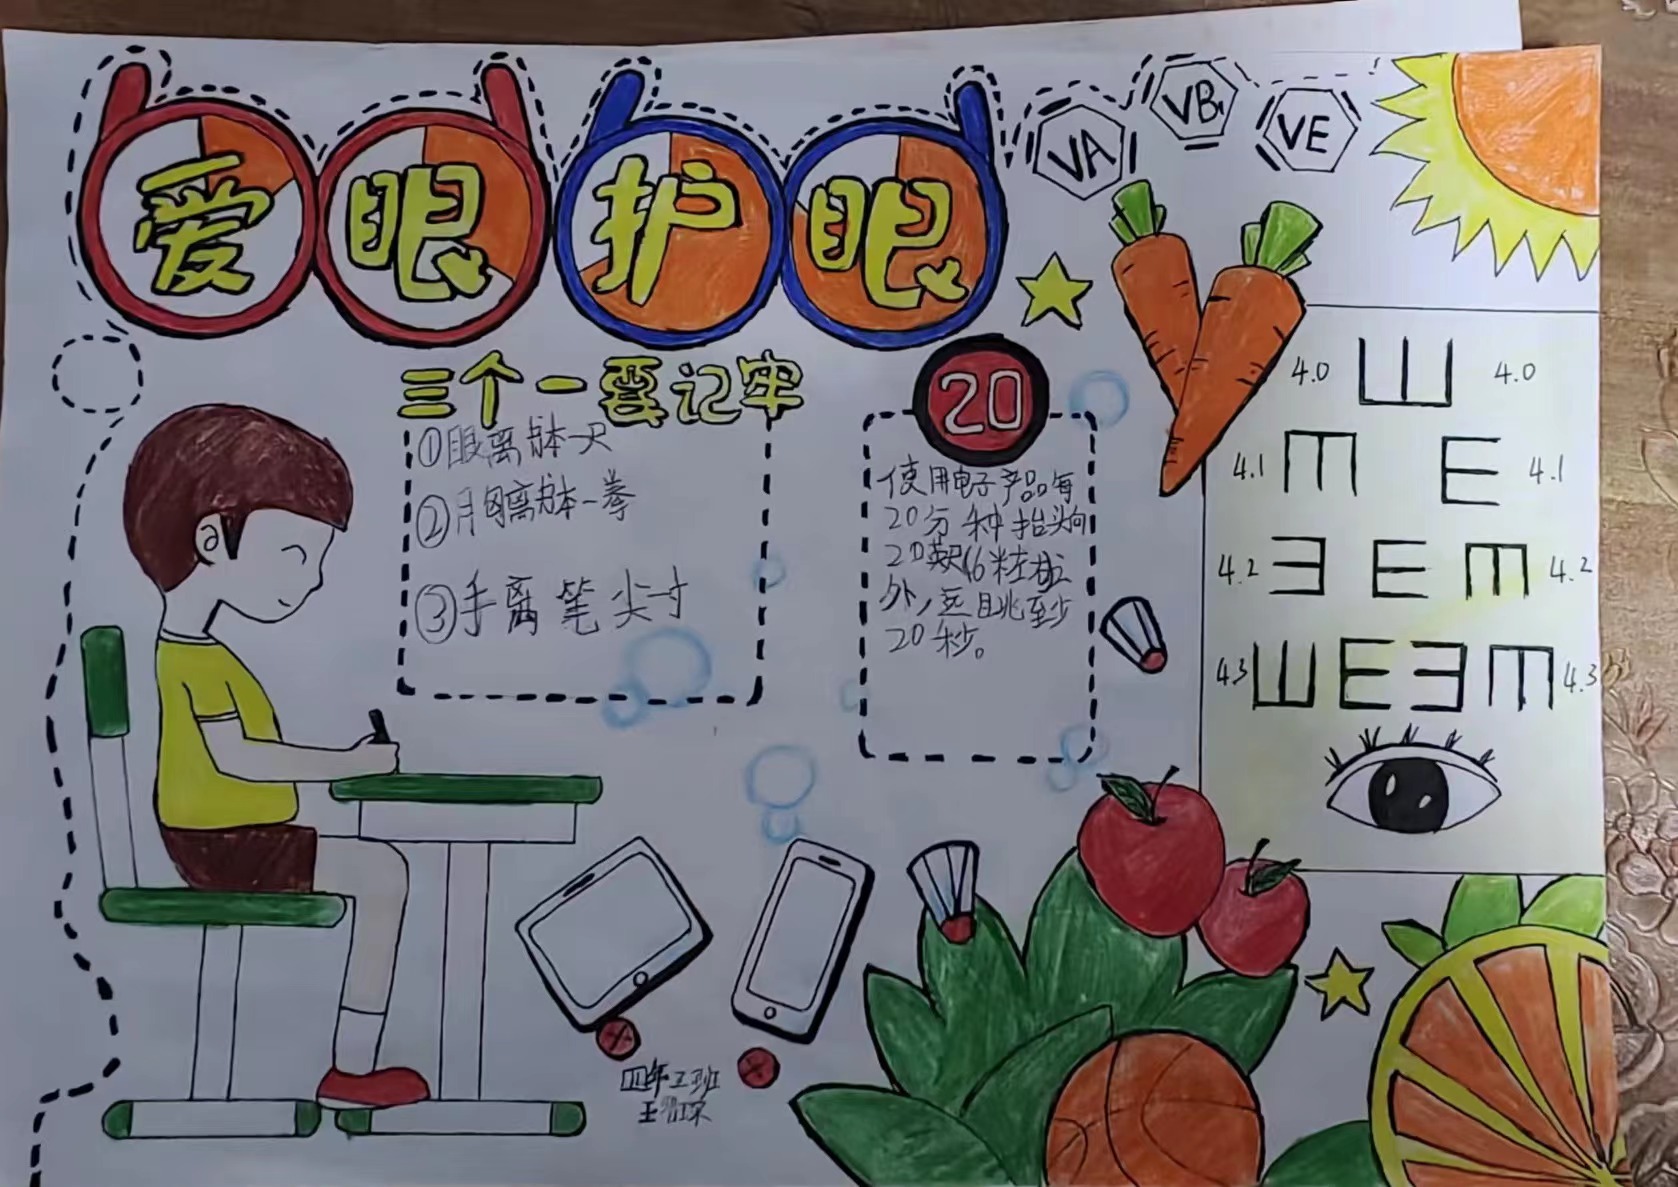 爱眼护眼
VA
VB1
VE
三个一要记牢
①眼离书本一尺
②胸离书本一拳
③手离笔尖一寸
20
使用电子产品每
20分钟抬头向
20英尺(6米左右)
外,远眺至少
20秒。
4.0 4.0
4.1 4.1
4.2 4.2
4.3 4.3
四年五班